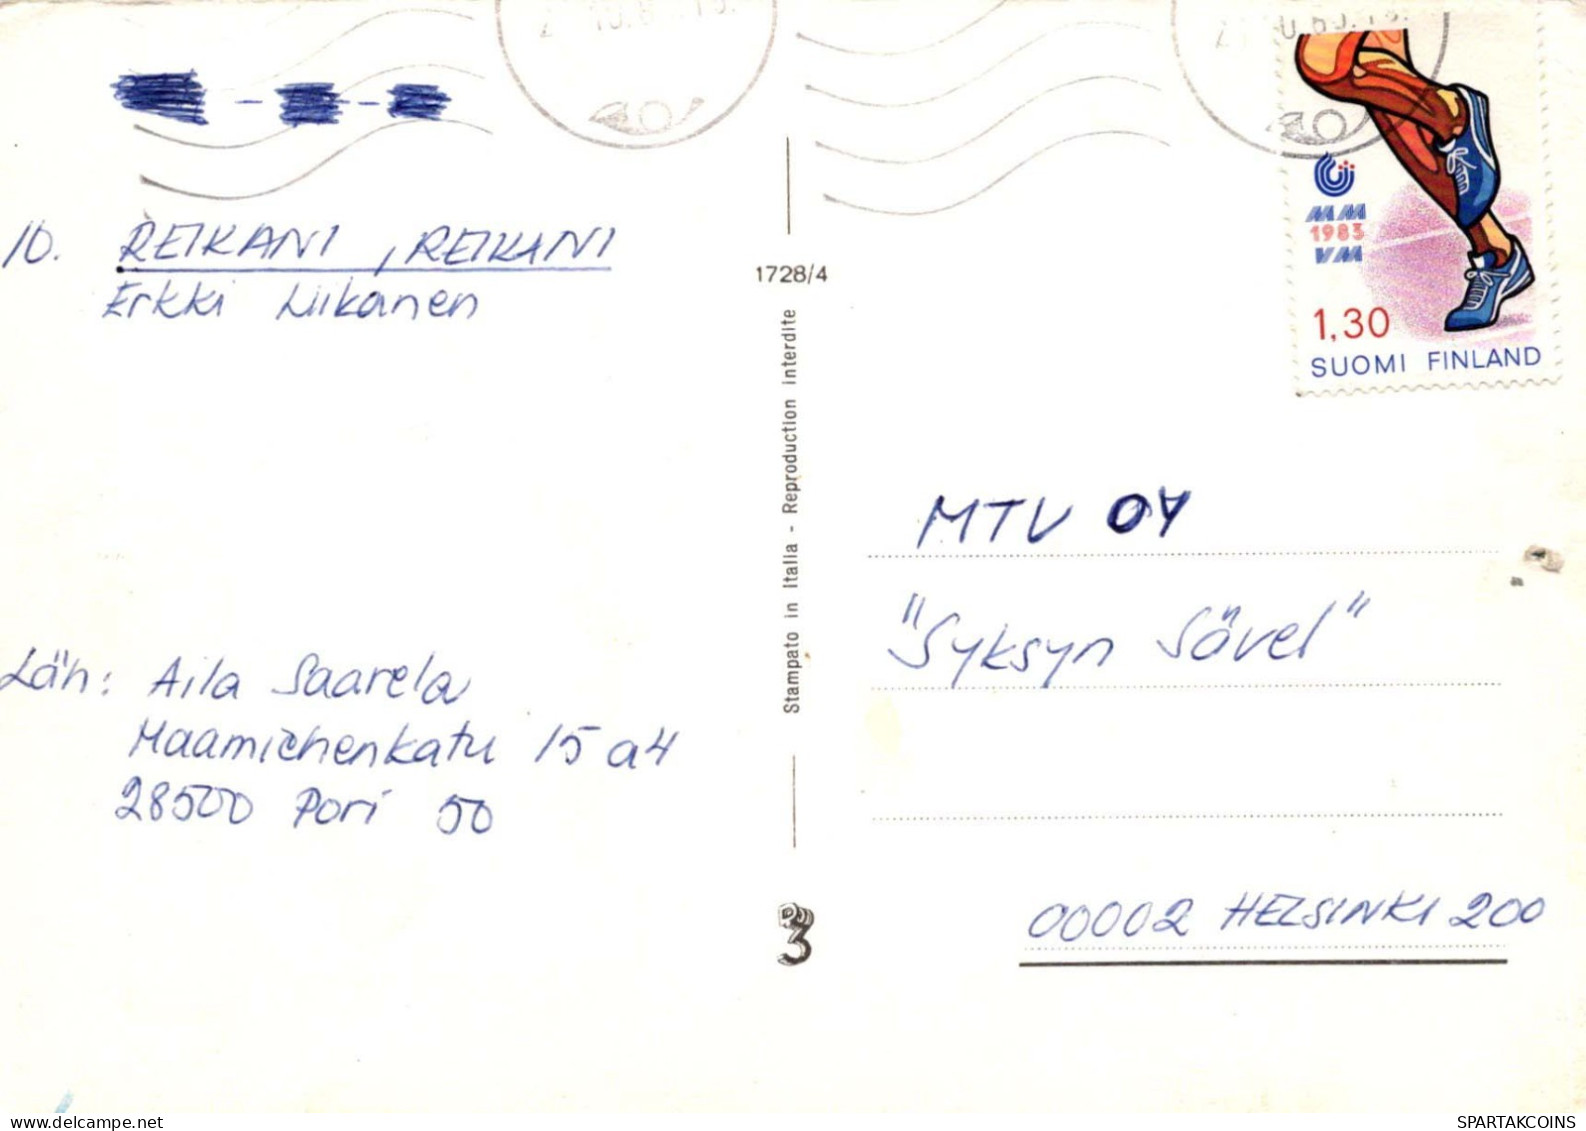 10. REIKANI, REIKANI
Erkki Liikanen
Läh: Aila Saarela
Maamiehenkatu 15 a4
28500 Pori 50
1728/4
Stampato in Italia - Reproduction interdite
3
MM
1983
VM
1,30
SUOMI FINLAND
MTV OY
"Syksyn Sävel"
00002 HELSINKI 200
www.delcampe.net
SPARTAKCOINS